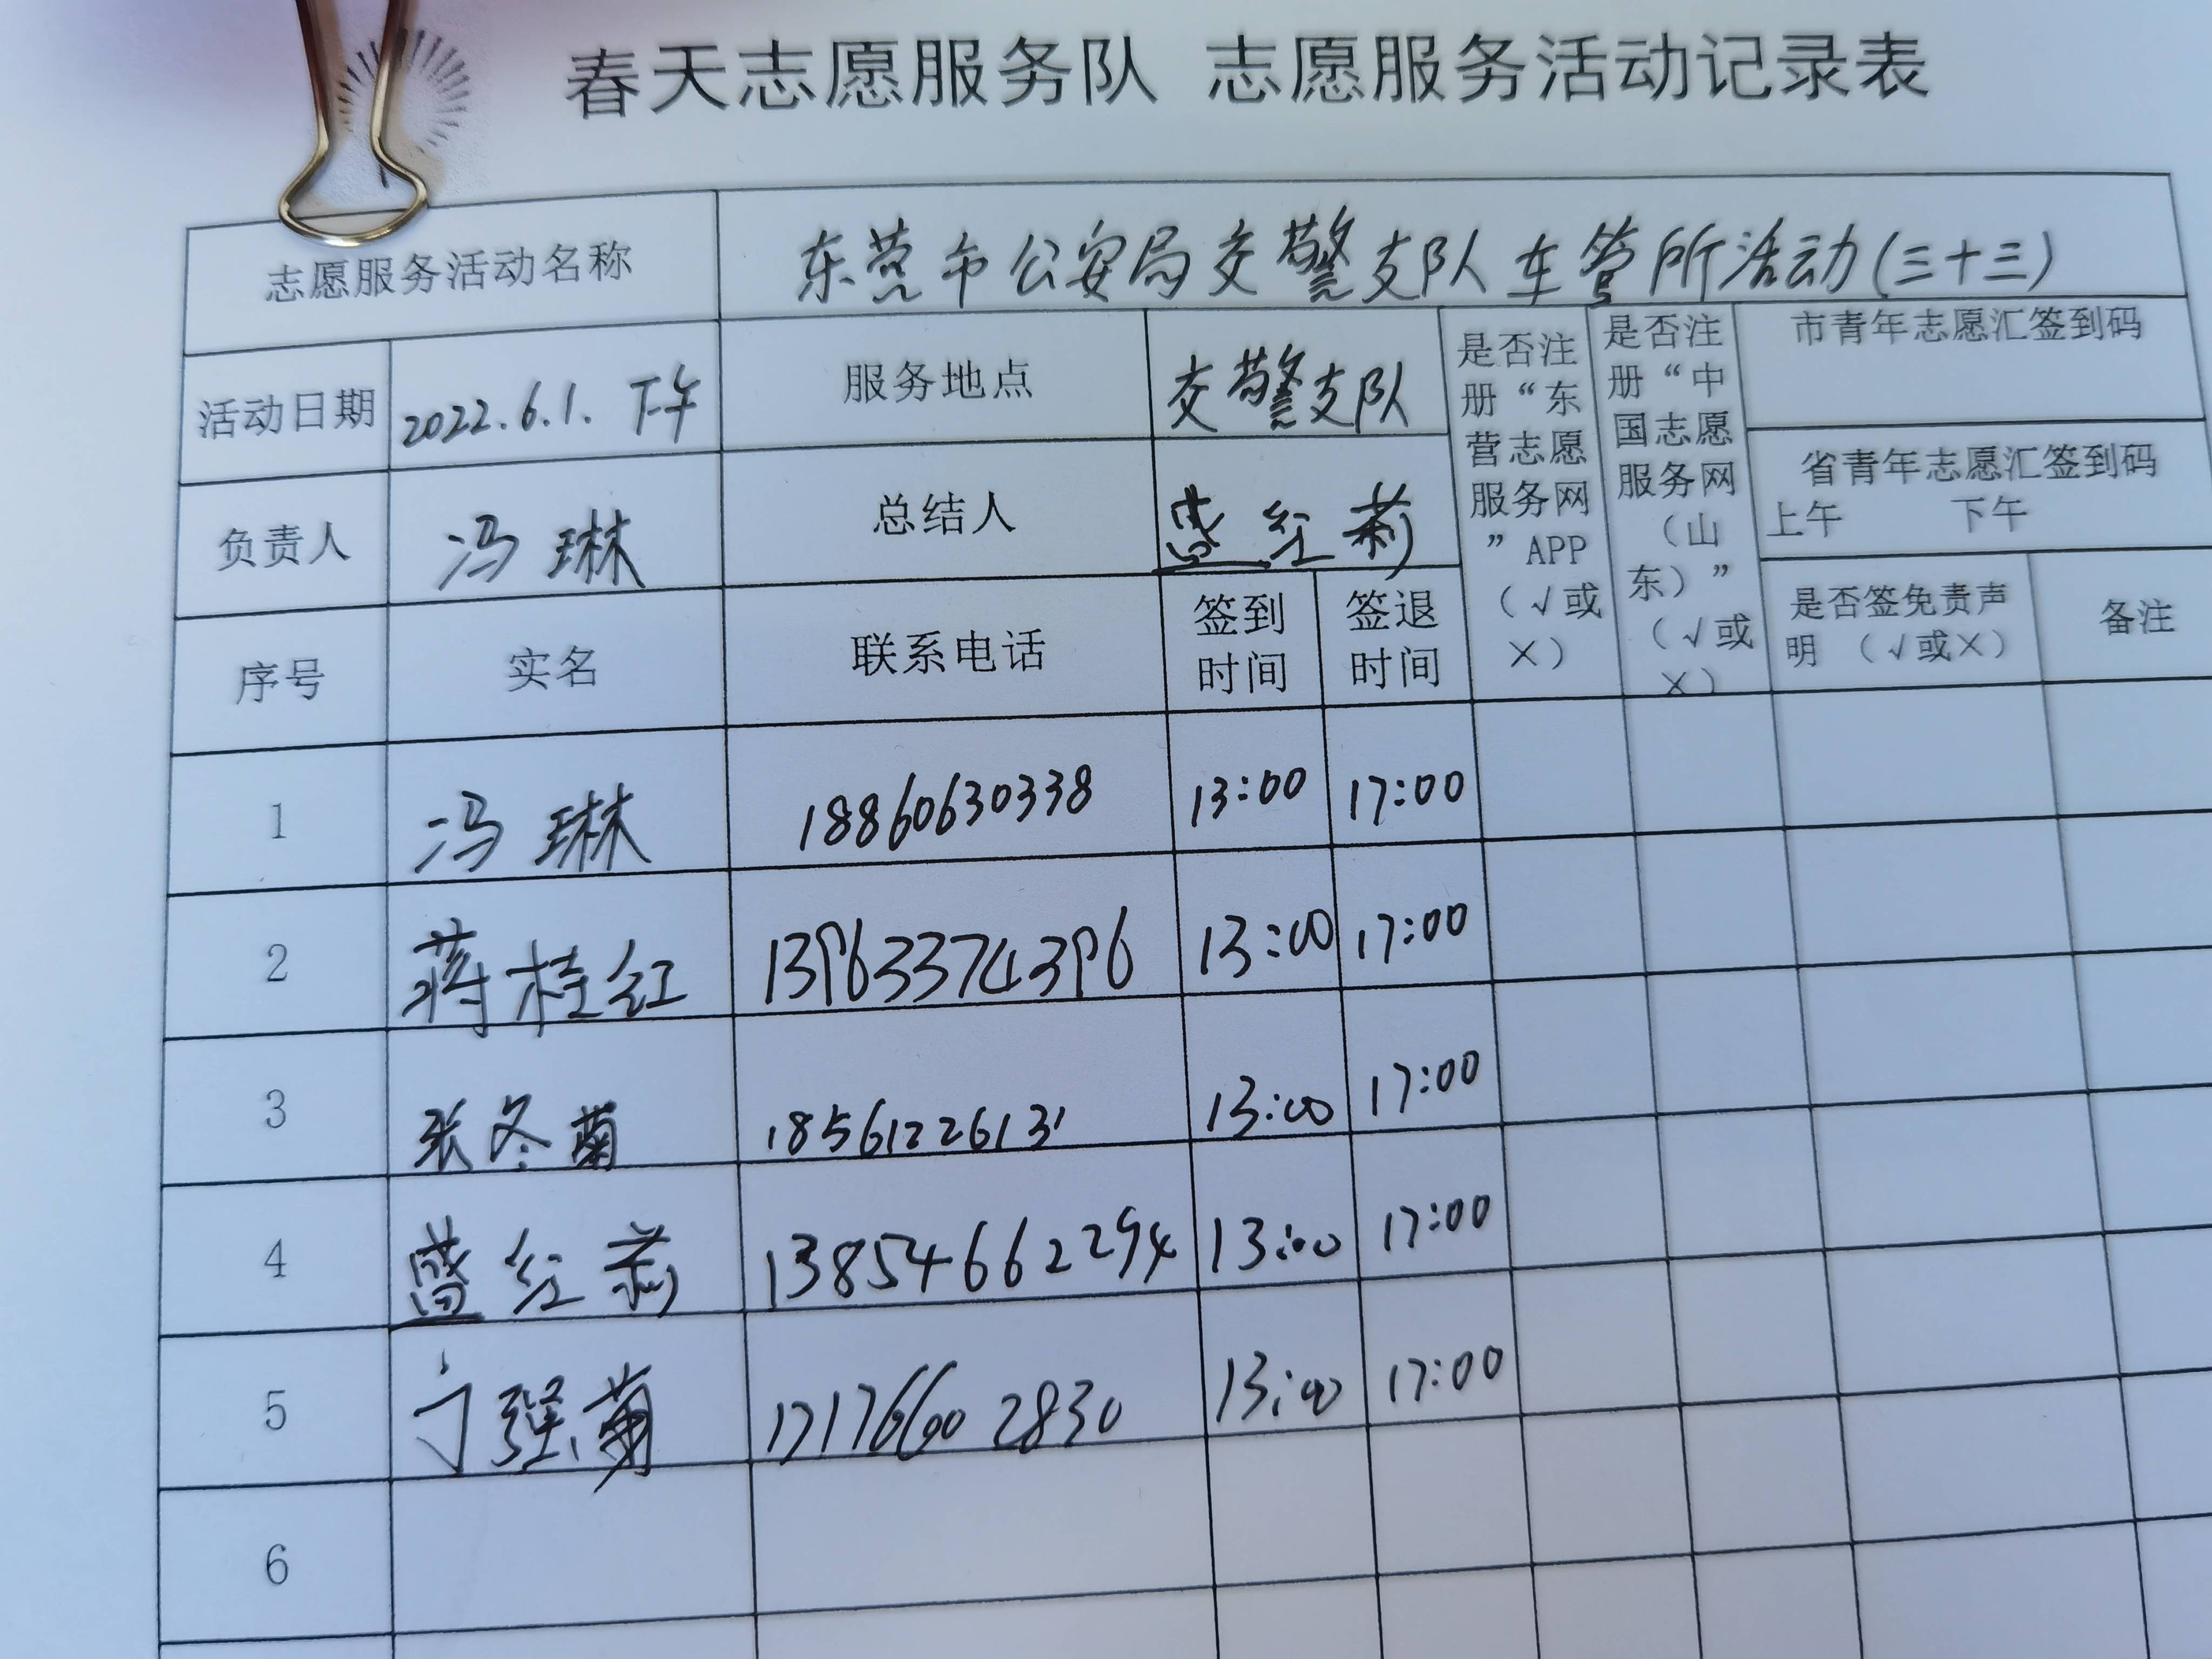 春天志愿服务队 志愿服务活动记录表
志愿服务活动名称 东营市公安局交警支队车管所活动(三十三)
活动日期 2022.6.1.下午 服务地点 交警支队
是否注册“东营志愿服务网”APP（√或×）
是否注册“中国志愿服务网（山东）”（√或×）
市青年志愿汇签到码
省青年志愿汇签到码
上午 下午
负责人 冯琳 总结人 盛红莉
序号 实名 联系电话 签到时间 签退时间 是否签免责声明（√或×） 备注
1 冯琳 18860630338 13:00 17:00
2 蒋桂红 13963374396 13:00 17:00
3 张冬菊 18561226131 13:00 17:00
4 盛红莉 13854662294 13:00 17:00
5 宁强菊 17176602830 13:00 17:00
6